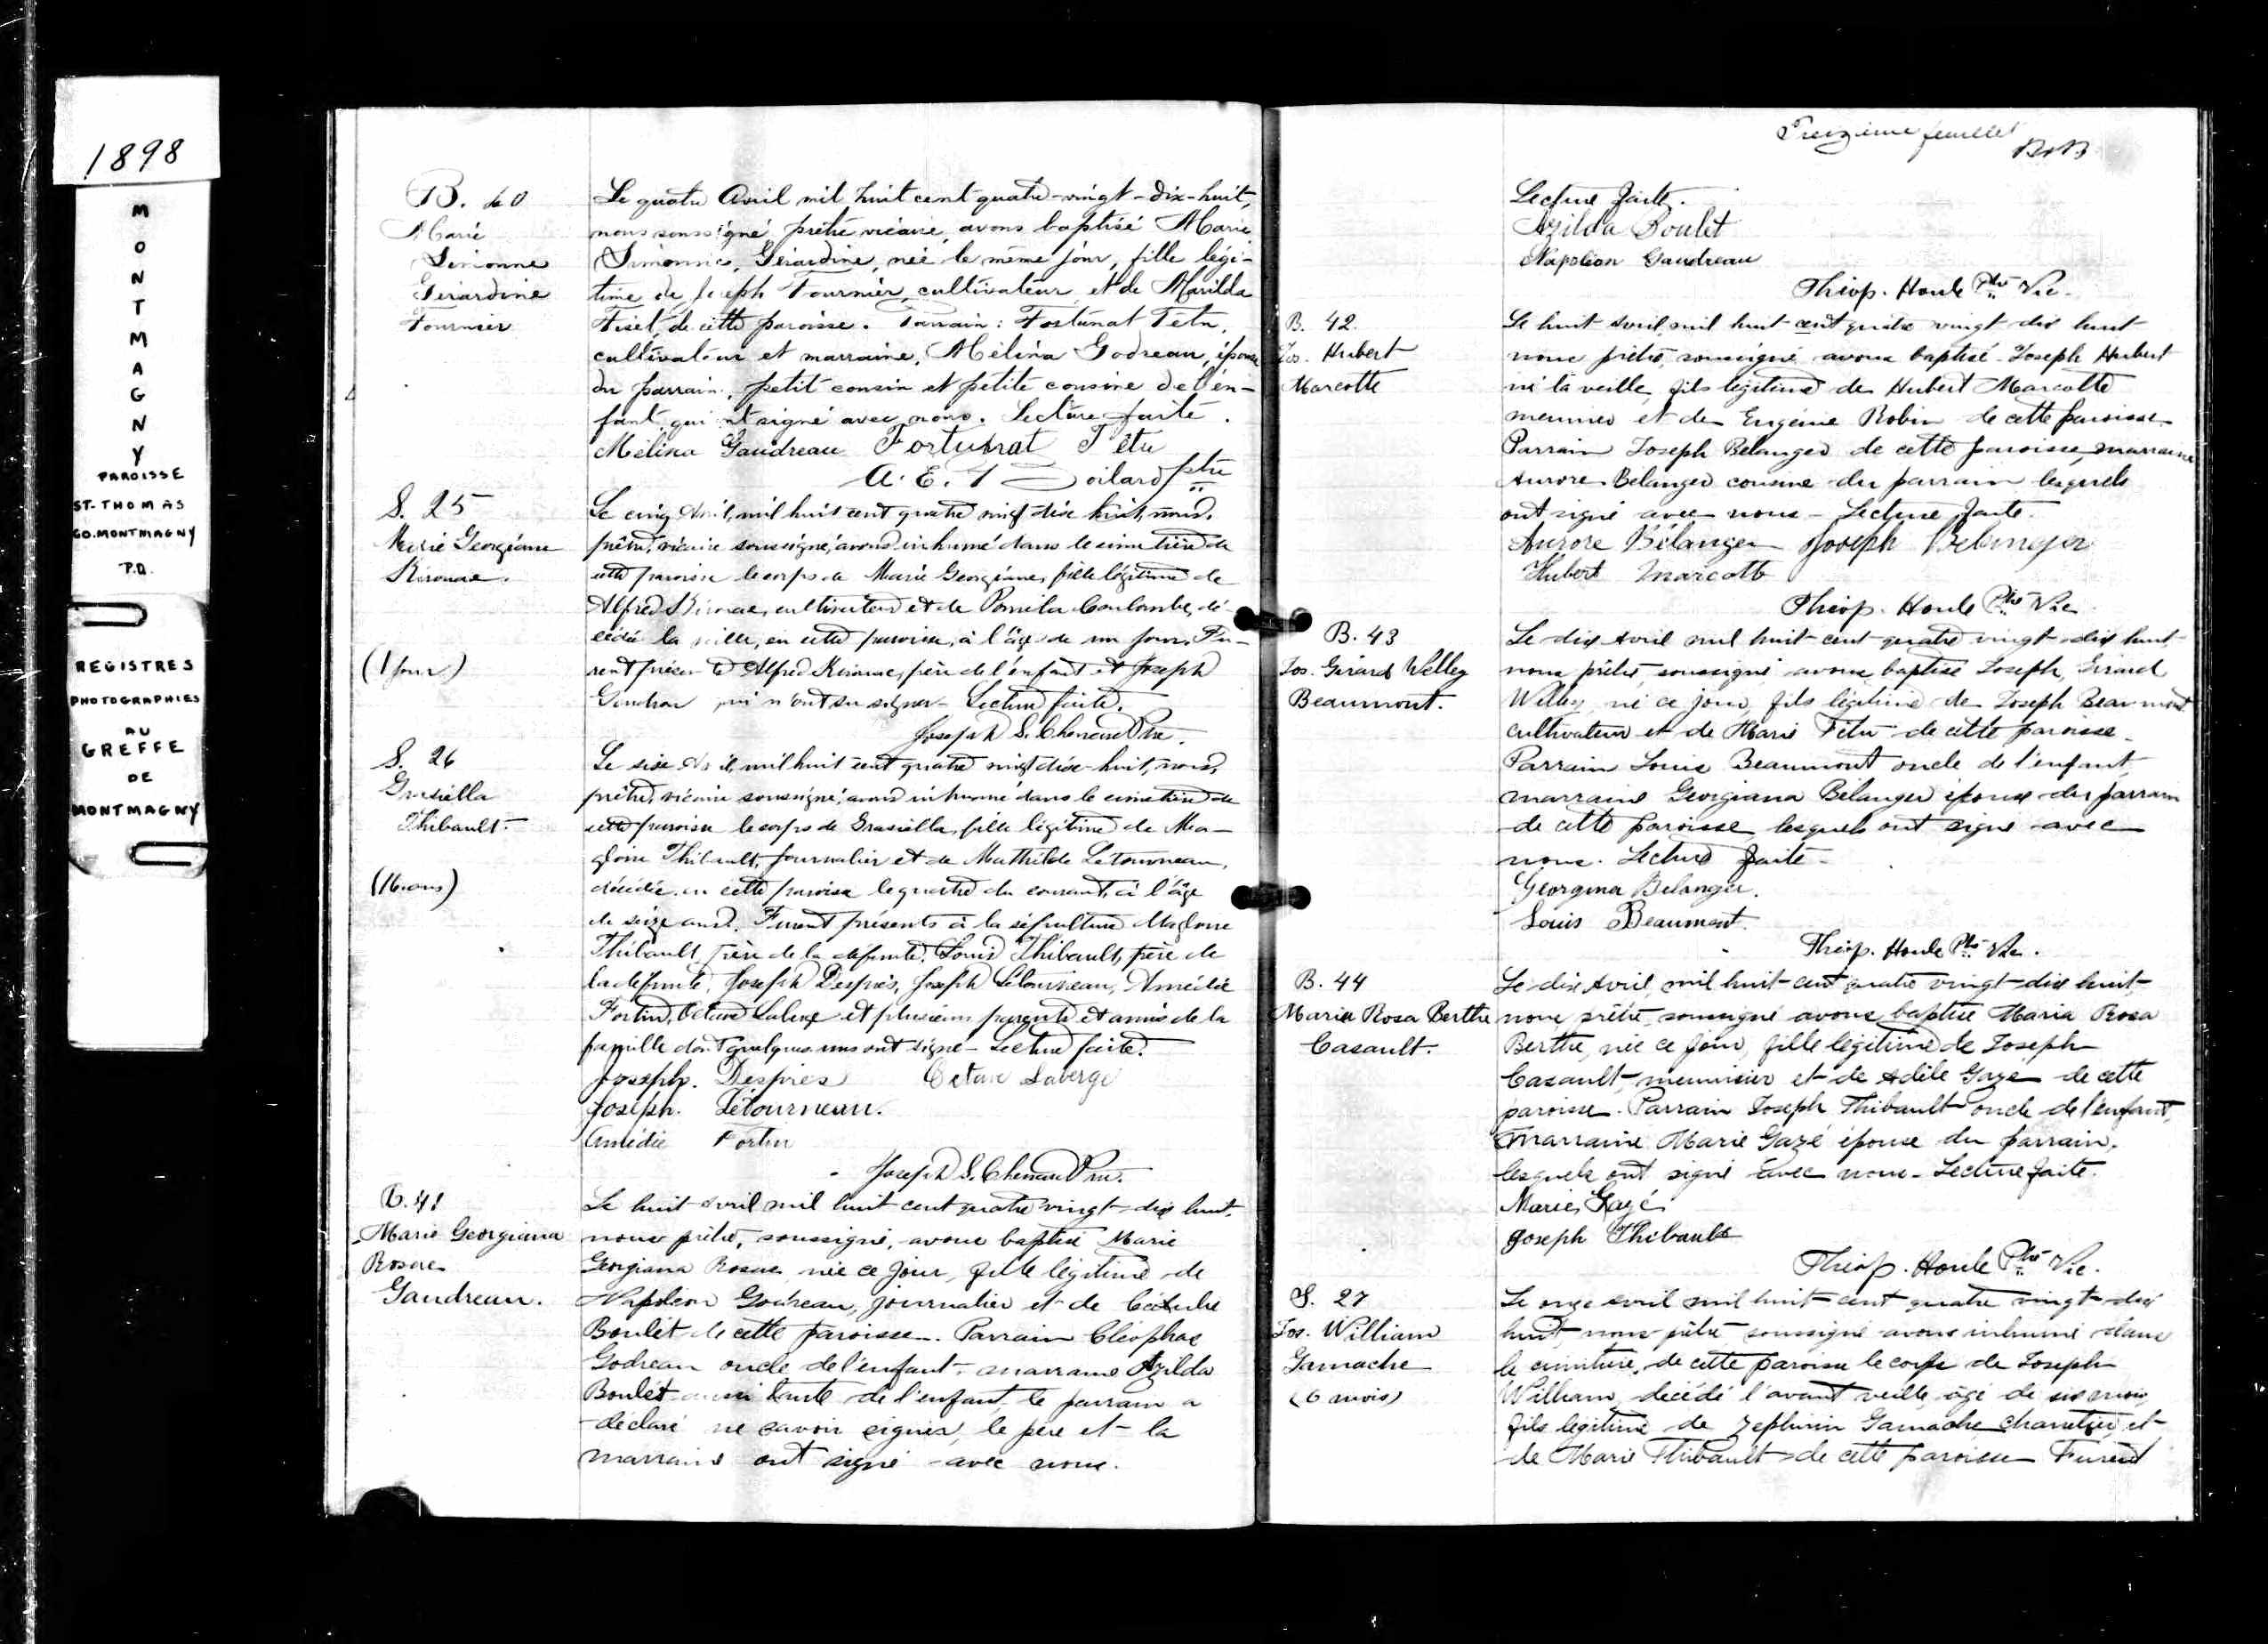 1898
MONTMAGNY
PAROISSE
ST-THOMAS
CO. MONTMAGNY
P.Q.
REGISTRES
PHOTOGRAPHIES
AU
GREFFE
DE
MONTMAGNY
B. 40
Marie
Simonne
Gérardine
Fournier
Le quatre Avril mil huit cent quatre-vingt-dix-huit,
nous soussigné prêtre vicaire, avons baptisé Marie
Simonne, Gérardine, née le même jour, fille légi-
time de Joseph Fournier, cultivateur et de Marilda
Fiset, de cette paroisse. Parrain: Fortunat Tetu,
cultivateur et marraine, Mélina Godreau, épouse
du parrain, petit cousin et petite cousine de l'en-
fant, qui ont signé avec nous. Lecture faite.
Mélina Gaudreau Fortunat Têtu
A. E. Soilard ptre
S. 25
Marie Georgiana
Kirouac.
(1 jour)
Le cinq Avril, mil huit cent quatre vingt dix huit, nous,
prêtre, vicaire soussigné, avons inhumé dans le cimetière de
cette paroisse le corps de Marie Georgiana, fille légitime de
Alfred Kirouac, cultivateur et de Pamela Coulombe, dé-
cédée la veille, en cette paroisse, à l'âge de un jour. Fu-
rent présents Alfred Kirouac, père de l'enfant et Joseph
Gendron qui n'ont su signer - Lecture faite.
Joseph S. Chenard Ptre.
S. 26
Grasiella
Thibault.
(16 ans)
Le six Avril, mil huit cent quatre vingt dix-huit, nous,
prêtre, vicaire soussigné, avons inhumé dans le cimetière de
cette paroisse le corps de Grasiella, fille légitime de Ma-
gloire Thibault, journalier et de Mathilde Letourneau,
décédée en cette paroisse le quatre du courant, à l'âge
de seize ans. Furent présents à la sépulture Magloire
Thibault, père de la défunte, Louis Thibault, frère de
la défunte, Joseph Després, Joseph Létourneau, Amédée
Fortin, Octave Laberge et plusieurs parents et amis de la
famille dont quelques-uns ont signé - Lecture faite.
Joseph. Després Octave Laberge
Joseph. Létourneau.
Amédée Fortin
Joseph S. Chenard Ptre.
B. 41
Marie Georgiana
Rosae
Gaudreau.
Le huit avril mil huit cent quatre vingt-dix huit.
nous prêtre, soussigné, avons baptisé Marie
Georgiana Rosae née ce jour, fille légitime de
Napoléon Godreau, journalier et de
Boulet de cette paroisse. Parrain Cléophas
Godreau oncle de l'enfant, marraine Azilda
Boulet aussi tante de l'enfant, le parrain a
déclaré ne savoir signer, le père et la
marraine ont signé avec nous.
Treizième feuillet
Lecture faite.
Azilda Boulet
Napoléon Gaudreau
Théop. Houle Ptre Vic.
B. 42.
Jos. Hubert
Marcotte
Le huit Avril mil huit cent quatre vingt dix huit
nous prêtre, soussigné avons baptisé Joseph Hubert
né la veille, fils légitime de Hubert Marcotte
meunier et de Eugénie Robin de cette paroisse.
Parrain Joseph Belanger de cette paroisse, marraine
Aurore Belanger cousine du parrain lesquels
ont signé avec nous - Lecture faite.
Aurore Bélanger Joseph Belanger
Hubert Marcotte
Théop. Houle Ptre Vic
B. 43
Jos. Girard Welley
Beaumont.
Le dix Avril mil huit-cent quatre vingt-dix huit
nous prêtre soussigné avons baptisé Joseph, Girard
Willey né ce jour, fils légitime de Joseph Beaumont
cultivateur et de Marie Fétu de cette paroisse.
Parrain Louis Beaumont oncle de l'enfant
marraine Georgiana Bélanger épouse du parrain
de cette paroisse lesquels ont signé avec
nous. Lecture faite.
Georgina Belanger.
Louis Beaumont.
Théop. Houle Ptre Vic.
B. 44
Maria Rosa Berthe
Casault.
Le dix Avril, mil huit-cent quatre vingt-dix huit
nous prêtre, soussigné avons baptisé Maria Rosa
Berthe, née ce jour, fille légitime de Joseph
Casault, menuisier et de Adèle Gaze de cette
paroisse. Parrain Joseph Thibault oncle de l'enfant,
Marraine Marie Gazé épouse du parrain,
lesquels ont signé avec nous - Lecture faite.
Marie Gazé
Joseph Thibault
Théop. Houle Ptre Vic.
S. 27
Jos. William
Gamache
(6 mois)
Le onze avril mil huit cent quatre vingt-dix
huit, nous prêtre soussigné avons inhumé dans
le cimetière de cette paroisse le corps de Joseph
William, décédé l'avant veille, âgé de six mois,
fils légitime de Zephirin Gamache charretier et
de Marie Thibault de cette paroisse Furent